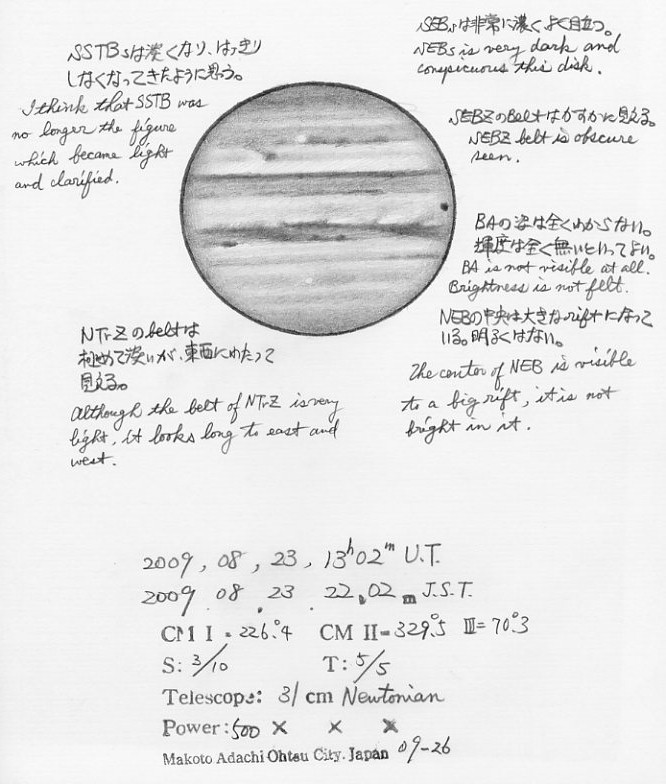 SSTBsは淡くなり、はっきり
しなくなってきたように思う。
I think that SSTB was
no longer the figure
which became light
and clarified.
SEBsは非常に濃くよく目立つ。
NEBs is very dark and
conspicuous this disk.
SEBZのBeltはかすかに見える。
SEBZ belt is obscure
seen.
BAの姿は全くわからない。
輝度は全く無いといってよい。
BA is not visible at all.
Brightness is not felt.
NEBの中央は大きなriftになって
いる。明るくはない。
The center of NEB is visible
to a big rift, it is not
bright in it.
NTrZのbeltは
極めて淡いが、東西にわたって
見える。
Although the belt of NTrZ is very
light, it looks long to east and
west.
2009, 08, 23, 13h02m U.T.
2009 08 . 23 . 22h02m J.S.T.
CM I = 226.°4 CM II = 329.°5 III = 70.°3
S: 3/10 T: 5/5
Telescope: 31 cm Newtonian
Power: 500 × × ×
Makoto Adachi Ohtsu City. Japan 09-26